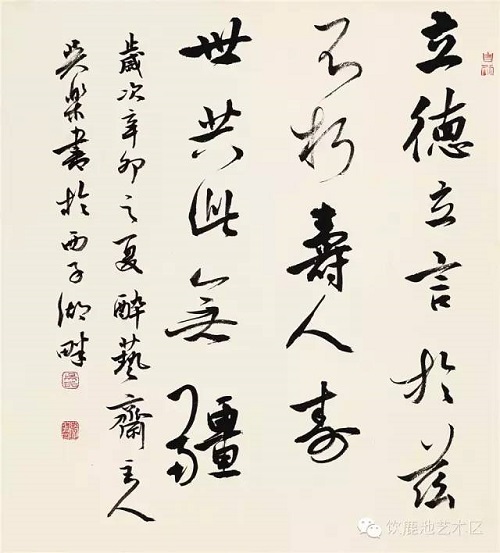 立德立言於兹
不朽壽人寿
世共此無疆
歲次辛卯之夏醉藝齋主人
吴樂書於西子湖畔
饮鹿池艺术区